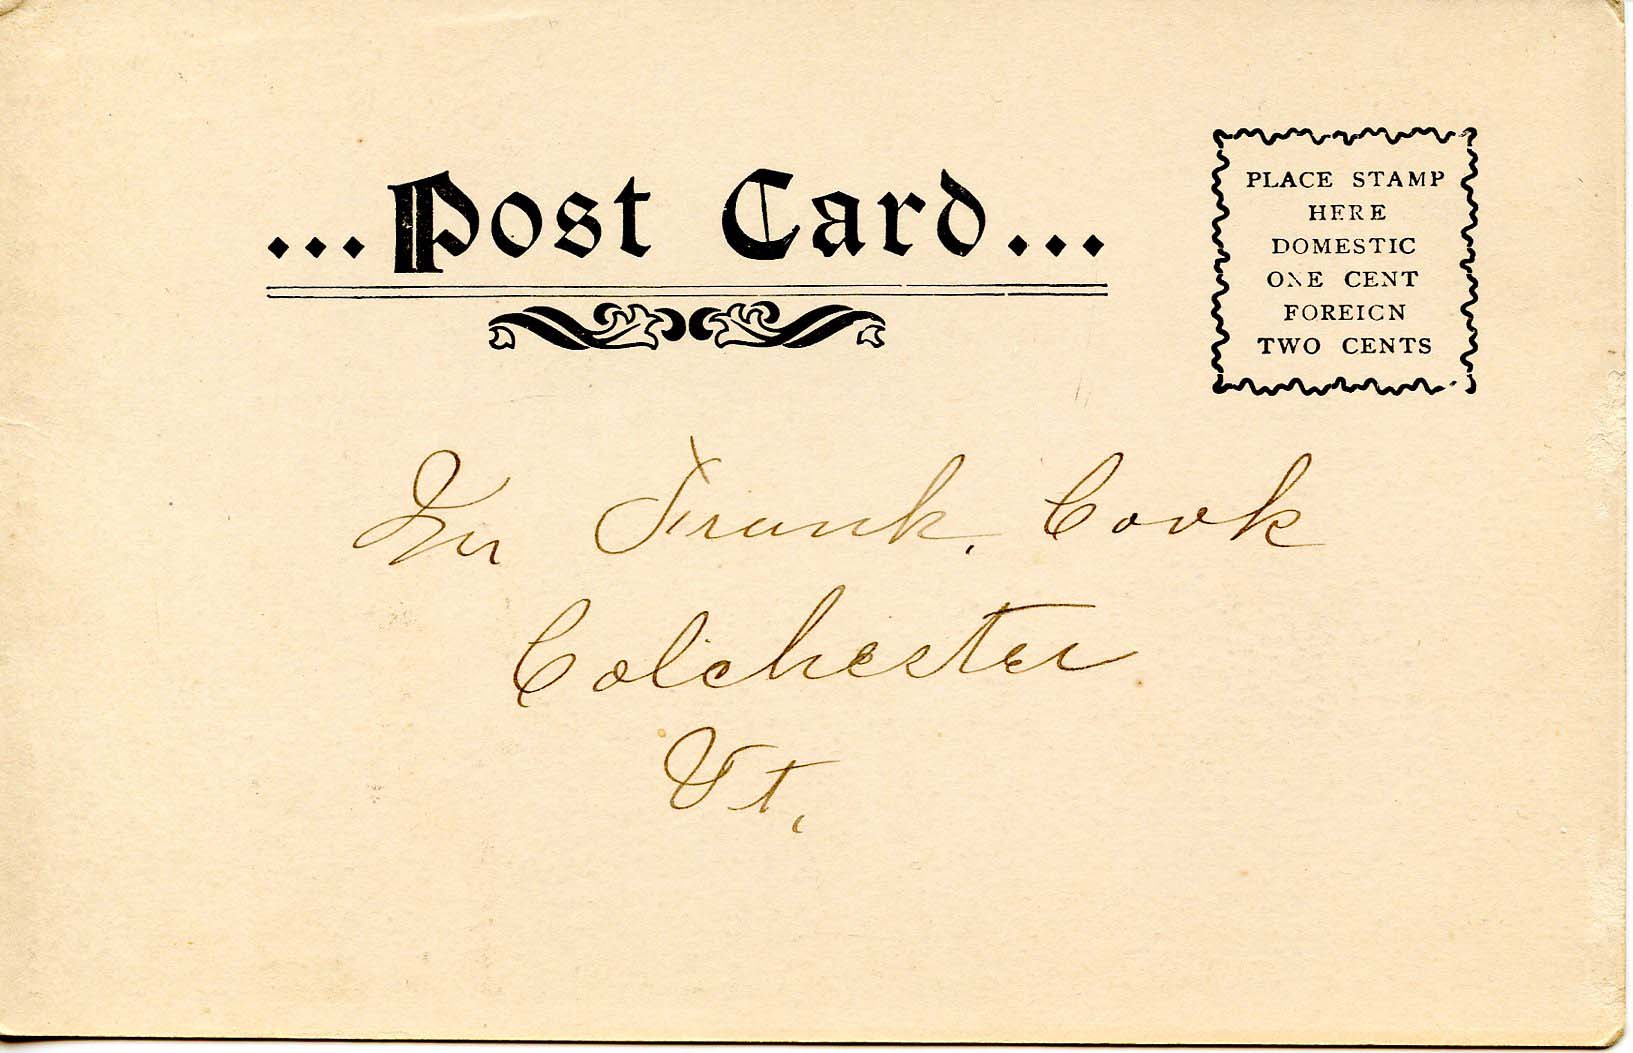 ...Post Card...
PLACE STAMP
HERE
DOMESTIC
ONE CENT
FOREIGN
TWO CENTS
Mr Frank. Cook
Colchester
Vt.